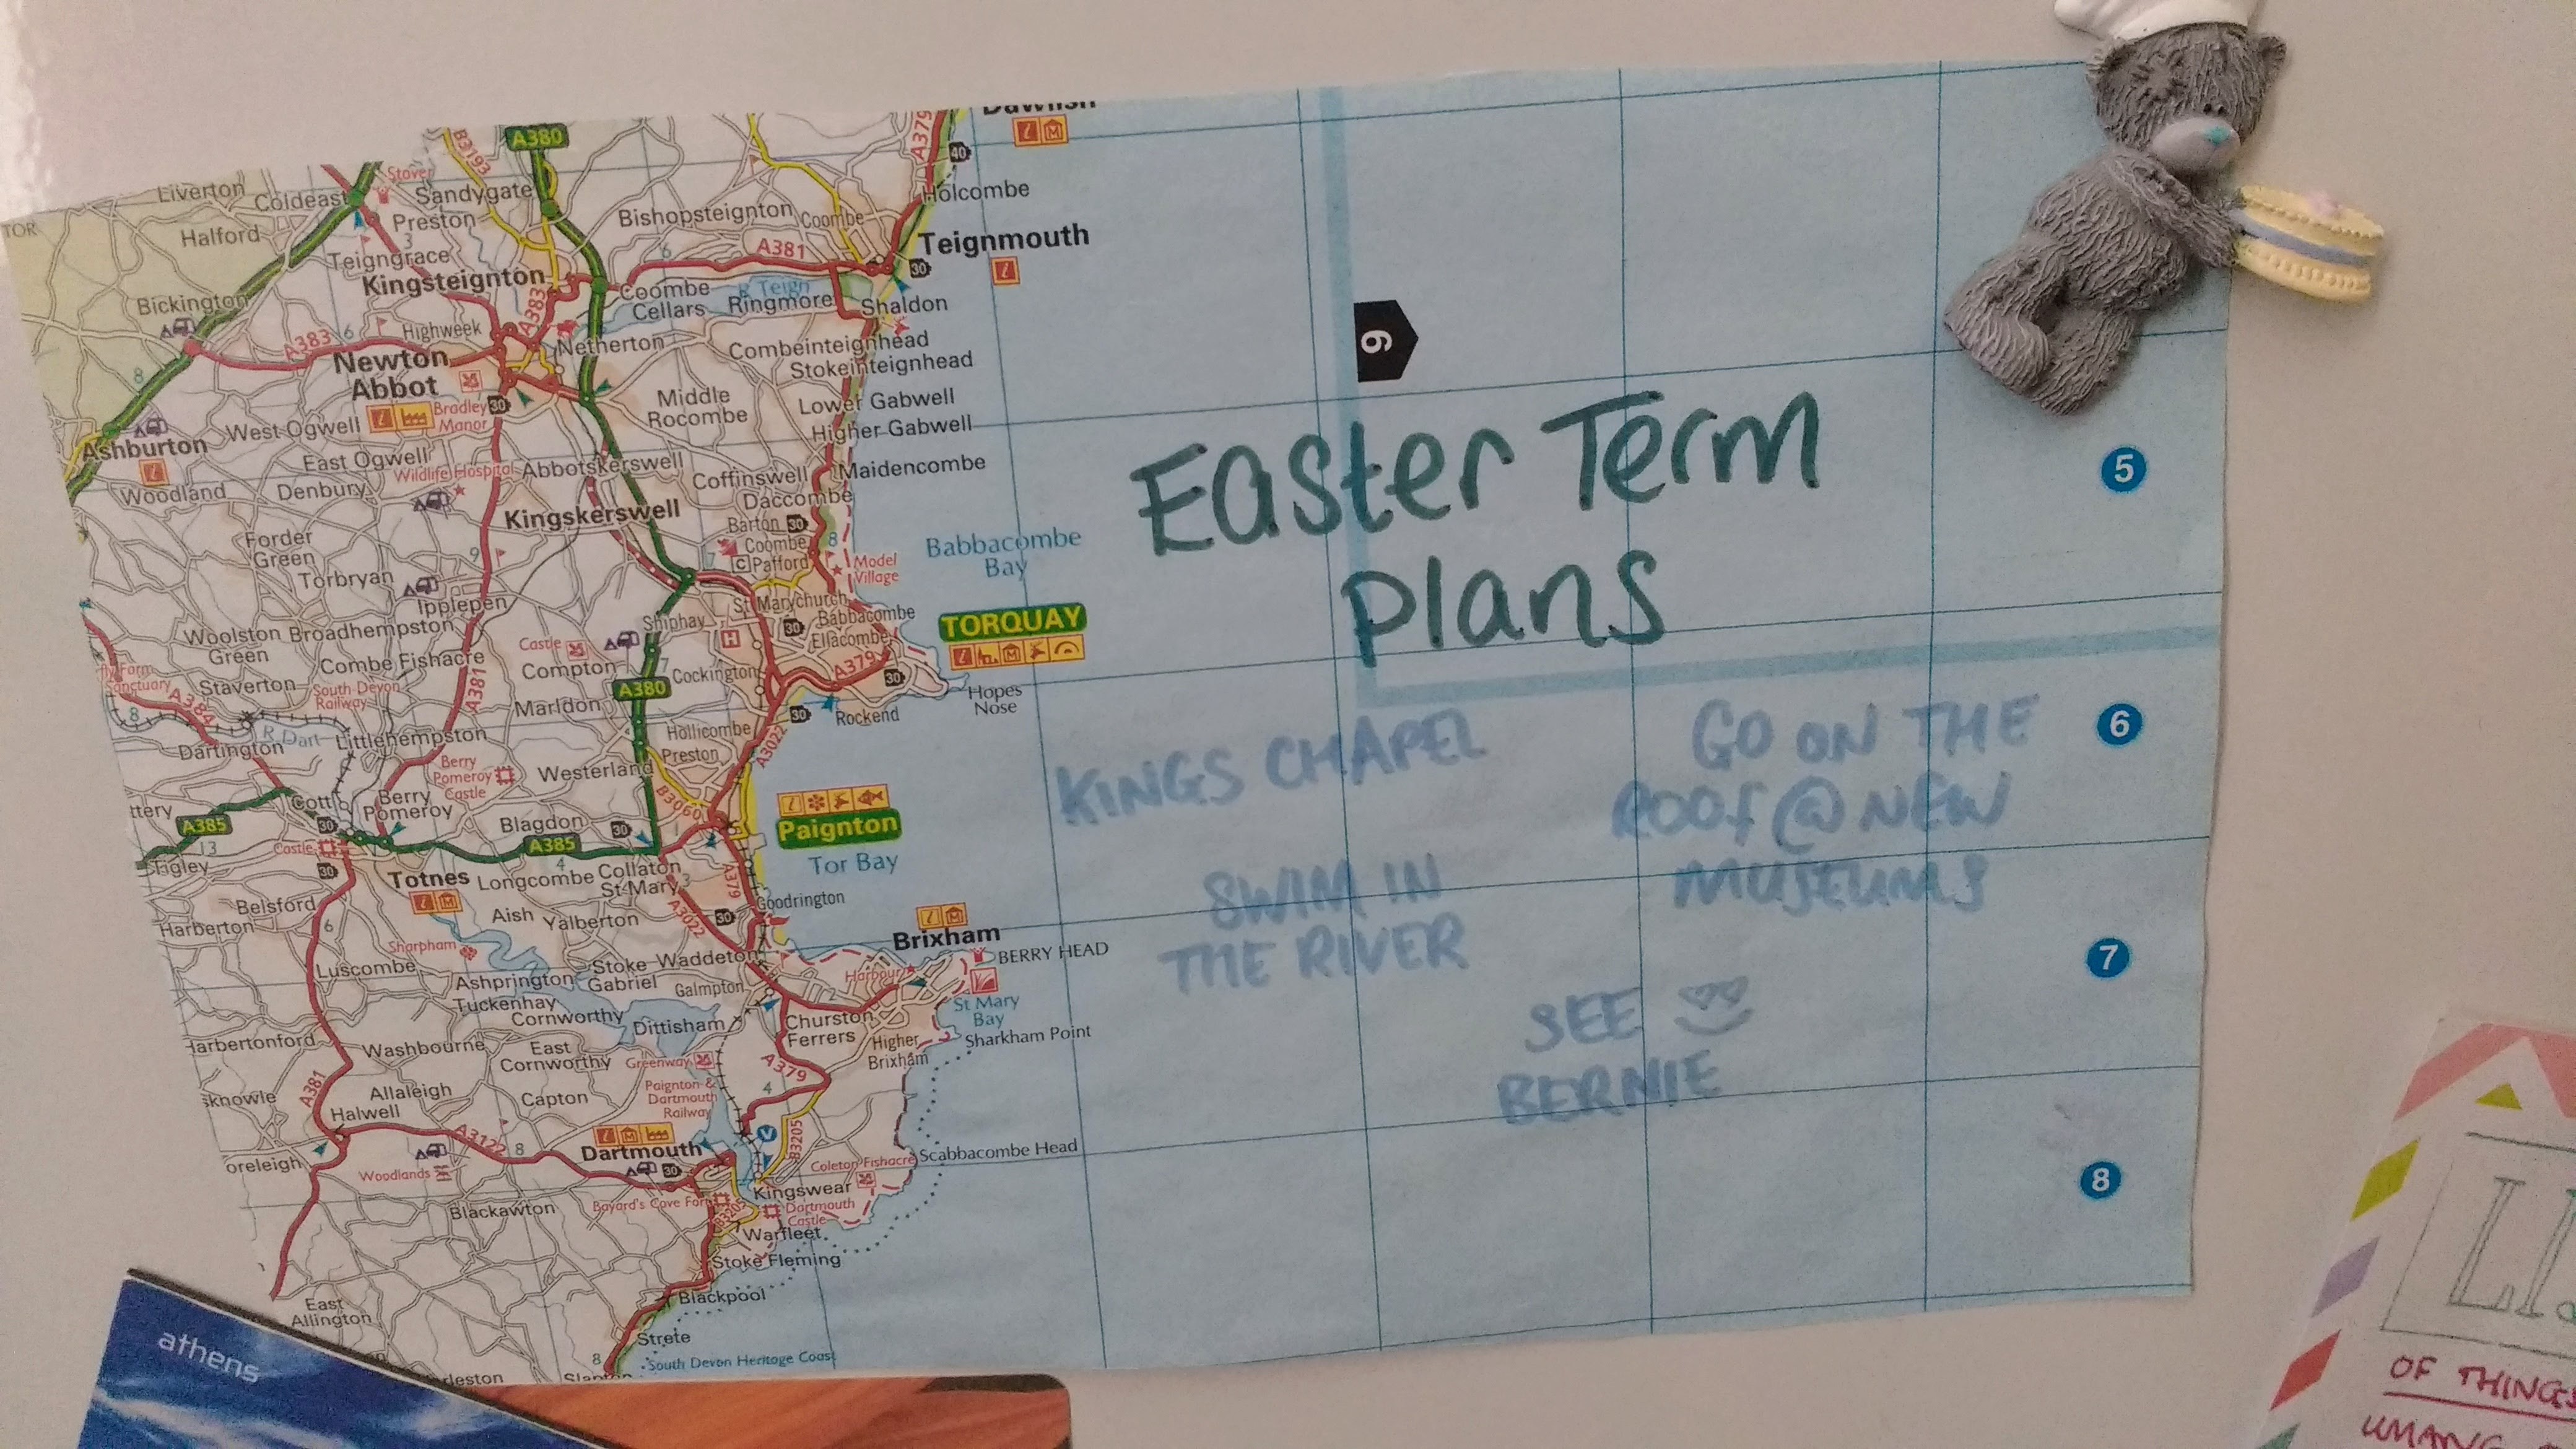 Dawlish
A380
B3193
A379
40
Stover
Liverton
Coldeast
Sandygate
Holcombe
Preston
3
Bishopsteignton
Coombe
TOR
Halford
Teigngrace
6
A381
Teignmouth
Kingsteignton
30
Coombe
Cellars
R Teign
Ringmore
Shaldon
Bickington
A383
A383
6
Highweek
Netherton
Combeinteignhead
9
Newton
Abbot
Stokeinteignhead
8
Bradley
Manor
30
Middle
Rocombe
Lower Gabwell
Higher Gabwell
Ashburton
West Ogwell
East Ogwell
Wildlife Hospital
Abbotskerswell
Coffinswell
Maidencombe
Woodland
Denbury
Daccombe
Easter Term
Plans
5
Kingskerswell
Barton
30
Forder
Green
9
Coombe
Pafford
8
7
C
Model
Village
Babbacombe
Bay
Torbryan
Ipplepen
St Marychurch
Babbacombe
Ellacombe
30
TORQUAY
Shiphay
H
Woolston
Green
Broadhempston
Castle
Compton
7
Cockington
A379
30
Combe Fishacre
A380
Hopes
Nose
fly Farm
Sanctuary
Staverton
South Devon
Railway
A381
8
A384
Marldon
30
Rockend
R. Dart
Littlehempston
Hollicombe
Preston
A3022
Dartington
Berry
Pomeroy
Castle
Westerland
B3060
Cott
Berry
Pomeroy
Paignton
ttery
A385
13
30
Blagdon
30
A385
4
1
Tor Bay
Tigley
Castle
30
Totnes
Longcombe
Collaton
St Mary
3
A379
Goodrington
Belsford
Harberton
6
Aish
Yalberton
A3022
30
Brixham
BERRY HEAD
Sharpham
Luscombe
Stoke
Gabriel
Waddeton
Harbour
Ashprington
Galmpton
2
St Mary
Bay
Tuckenhay
Cornworthy
Dittisham
Churston
Ferrers
Higher
Brixham
Sharkham Point
Harbertonford
Washbourne
East
Cornworthy
Greenway
A379
4
Paignton &
Dartmouth
Railway
Allaleigh
Capton
A381
Halwell
A3122
8
V
B3205
sknowle
Dartmouth
30
Coleton Fishacre
Scabbacombe Head
oreleigh
Woodlands
Kingswear
Bayard's Cove Fort
B3205
Dartmouth
Castle
Blackawton
Warfleet
Stoke Fleming
Blackpool
East
Allington
Strete
8
South Devon Heritage Coast
rleston
KINGS CHAPEL
GO ON THE
ROOf @ NEW
MUSEUMS
6
SWIM IN
THE RIVER
7
SEE
BERNIE
8
athens
OF THINGS